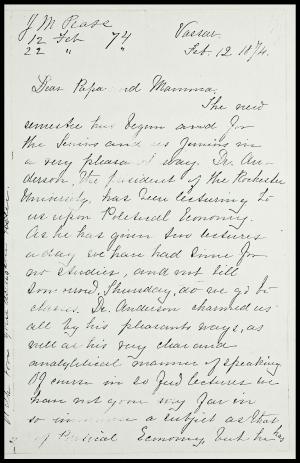 J M Pease
12 Feb 74
22 " "
Vassar.
Feb. 12 1874.
Dear Papa and Mamma.
The new
semester has begun and for
the Seniors and us Juniors in
a very pleasant way. Dr. An-
derson, the president of the Rochester
University, has been lecturing to
us upon Political Economy.
As he has given two lectures
a day we have had time for
no studies, and not till
tomorrow, Thursday, do we go to
classes. Dr. Anderson charmed us
all by his pleasant ways, as
well as his very clear and
analytical manner of speaking
Of course in so few lectures we
have not gone very far in
to immense a subject as that
of Political Economy, but he has